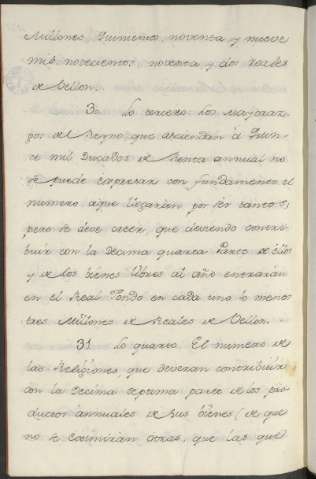 Millones Quinientos, noventa y nueve
mil novecientos, noventa y dos reales
de Vellon.
30. Lo tercero: los Mayoraz-
gos del Reyno, que asciendan á Quin-
ce mil Ducados de Renta annual no
se puede expresar con fundamento el
numero, aque llegarian por ser tantos;
pero se deve creer, que deviendo contri-
buir con la decima quarta Parte de ellos
y de los bienes libres al año entrarán
en el Real Fondo en cada uno lo menos
tres Millones de Reales de Vellon.
31. Lo quarto. El numero de
las Religiones que deveran contribuir
con la decima septima parte de los pro-
ductos annuales de sus bienes, de que
no se eximirán otras, que las que